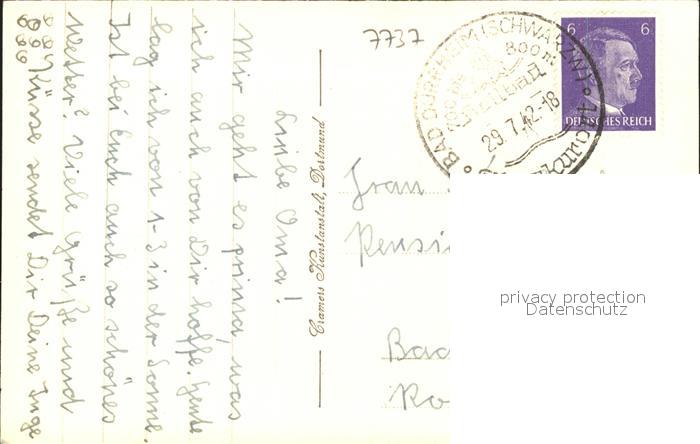 7737
BAD DÜRRHEIM (SCHWARZW)
800 m
29.7.42-18
6 6
DEUTSCHES REICH
Liebe Oma!
Mir geht es prima, was
ich auch von Dir hoffe. Heute
lag ich von 1-3 in der Sonne.
Ist bei Euch auch so schönes
Wetter? Viele Grüße und
Küsse sendet Dir Deine Inge
Cramers Kunstanstalt, Dortmund
Frau
Pensi
Bad
Ro
privacy protection
Datenschutz